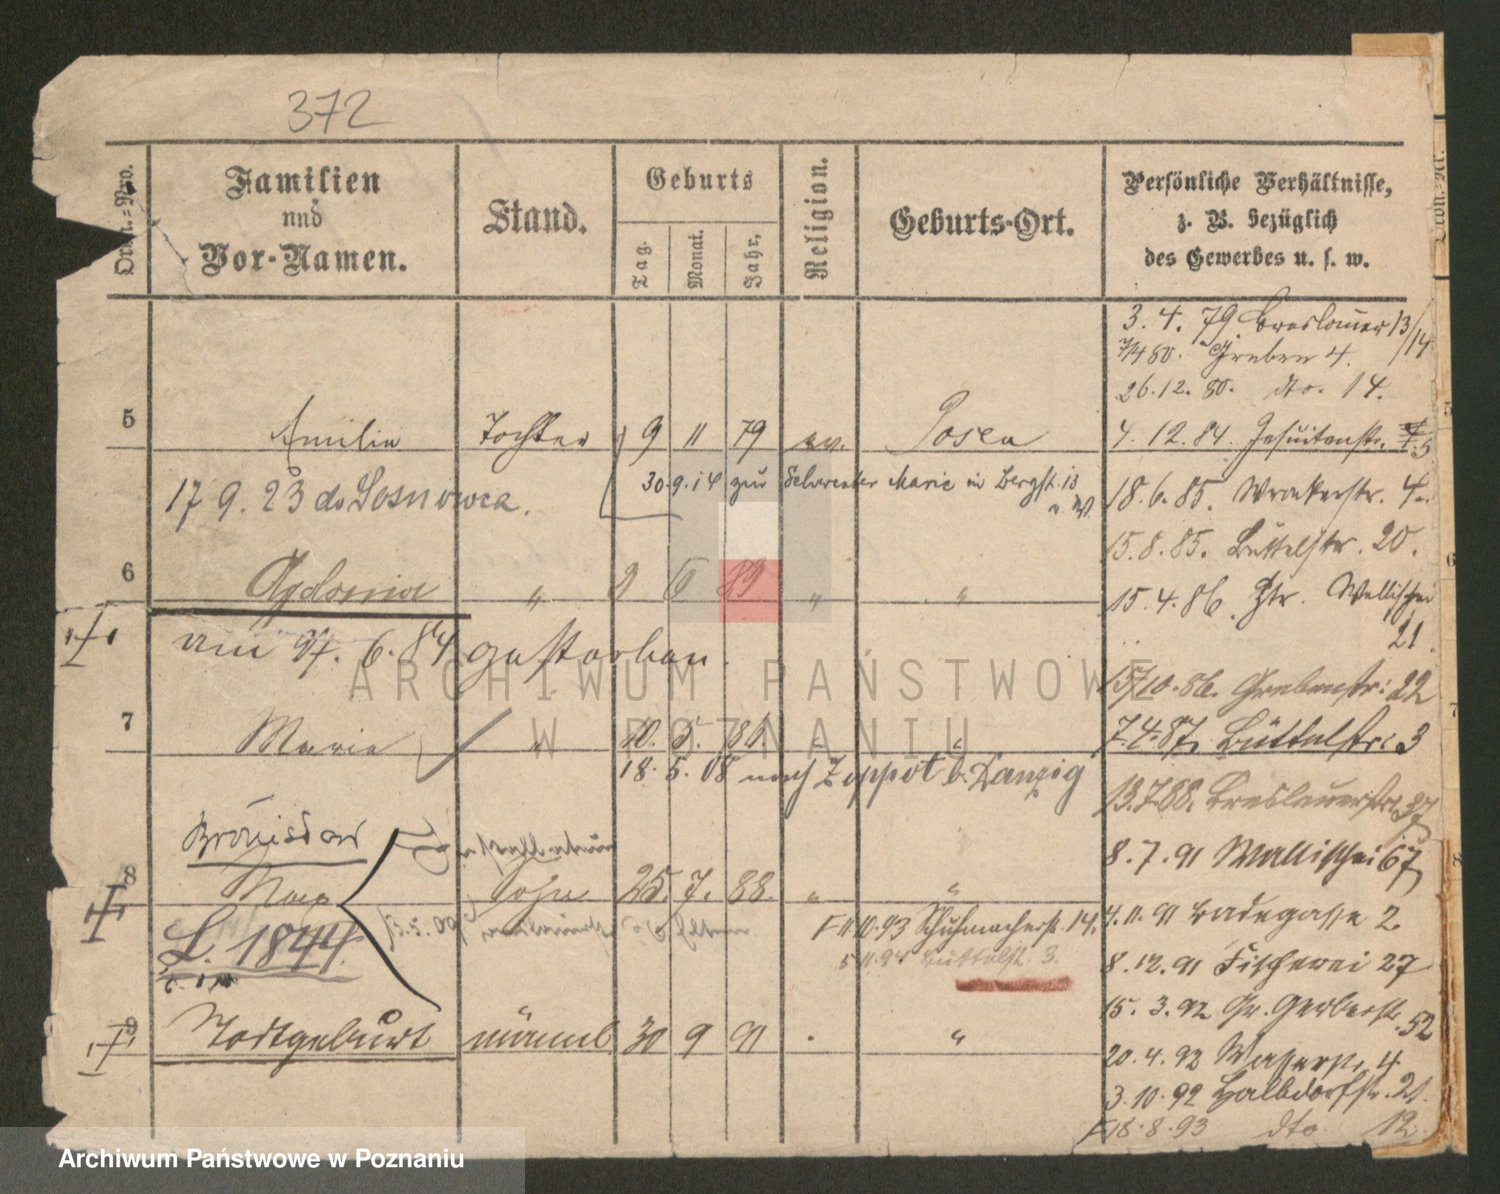 372
Ordn.-Nro.
Familien
und
Vor-Namen.
Stand.
Geburts
Tag.
Monat.
Jahr,
Religion.
Geburts-Ort.
Persönliche Verhältnisse,
z. B. bezüglich
des Gewerbes u. s. w.
3. 4. 79 Breslauer 13/14
7/4 80. Graben 4.
26.12. 80. dto. 14.
5 Emilie Tochter 9 11 79 ev. Posen
4. 12. 84. Jesuitenstr. 5
17 9. 23 do Sosnowca.
30.9.14 zur Schwester Marie in Bergstr. 13
18. 6. 85. Wronkerstr. 4.
15. 8. 85. Büttelstr. 20.
6 " 9 6 " "
15. 4. 86. Wallischei
21.
am 6. 84 gestorben.
15/10. 86. Grabenstr: 22
7 Marie " 10. 5. "
7. 4. 87. Büttelstr: 3
18. 5. 08 nach Zoppot b. Danzig
13.7.88. Breslauerstr. 37
Bronislaw
8. 7. 91 Wallischei 67
8 Max Sohn 25. 7. 88. " "
L. 1844.
11.10.93 Schuhmacherstr. 14.
4. 11. 91 Badegasse 2.
Büttelst. 3.
8. 12. 91 Fischerei 27
15. 3. 92 Gr. Gerberstr. 52
9 Todtgeburt männl 30 9 91 "
20. 4. 92 Wasserstr. 4
3. 10. 92 Halbdorfstr. 21.
16. 8. 93 dto 12.
5
6
7
8
ARCHIWUM PAŃSTWOWE
W POZNANIU
Archiwum Państwowe w Poznaniu